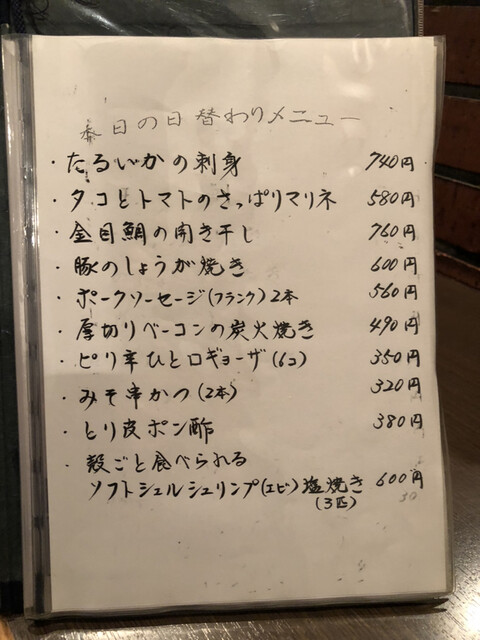 本日の日替わりメニュー
・たるいかの刺身 740円
・タコとトマトのさっぱりマリネ 580円
・金目鯛の開き干し 760円
・豚のしょうが焼き 600円
・ポークソーセージ(フランク)2本 560円
・厚切りベーコンの炭火焼き 490円
・ピリ辛ひと口ギョーザ(6コ) 350円
・みそ串かつ(2本) 320円
・とり皮ポン酢 380円
・殻ごと食べられる
ソフトシェルシュリンプ(エビ)塩焼き 600円
(3匹)